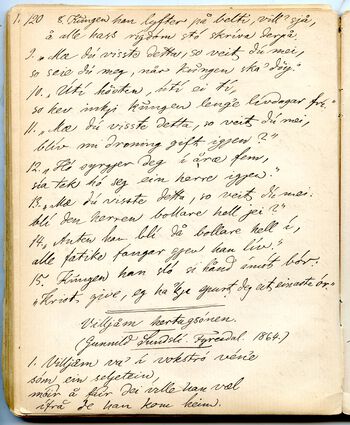 1. 120 8. Kungen han lyfter på belti, vill' sjå,
å alle hass rigdom stó skriva derpå.
9. "Mæ dú visste detta, so veit dú mei,
so seie dú meg, når kungen ska' döy."
10. "Úti hösten, úti ei tí,
so hev inkji kungen lenge livdagar
11. "Mæ dú visste detta, so veit dú mei,
bliv mi droning gift igjen?"
12. "Hó syrgjer deg i åræ fem,
sía tek hó seg ein herre igjen."
13. "Mæ dú visste detta, so veit dú mei
blí den herren bollare hell jei?"
14. "Anten han blí då bollare hell í,
alle fatike fangar gjev han lív."
15. Kungen han sló si hånd ímót bór:
"Krist, give, eg ha' spurt deg eit einaste ór"
Villjåm hertugsónen.
(Gunnild Sundsli. Fyresdal. 1864.)
1. Villjåm va' í vokstró véne
som ein seljetein,
móir å fair dei ville han væl
ífrå de han kom heim.